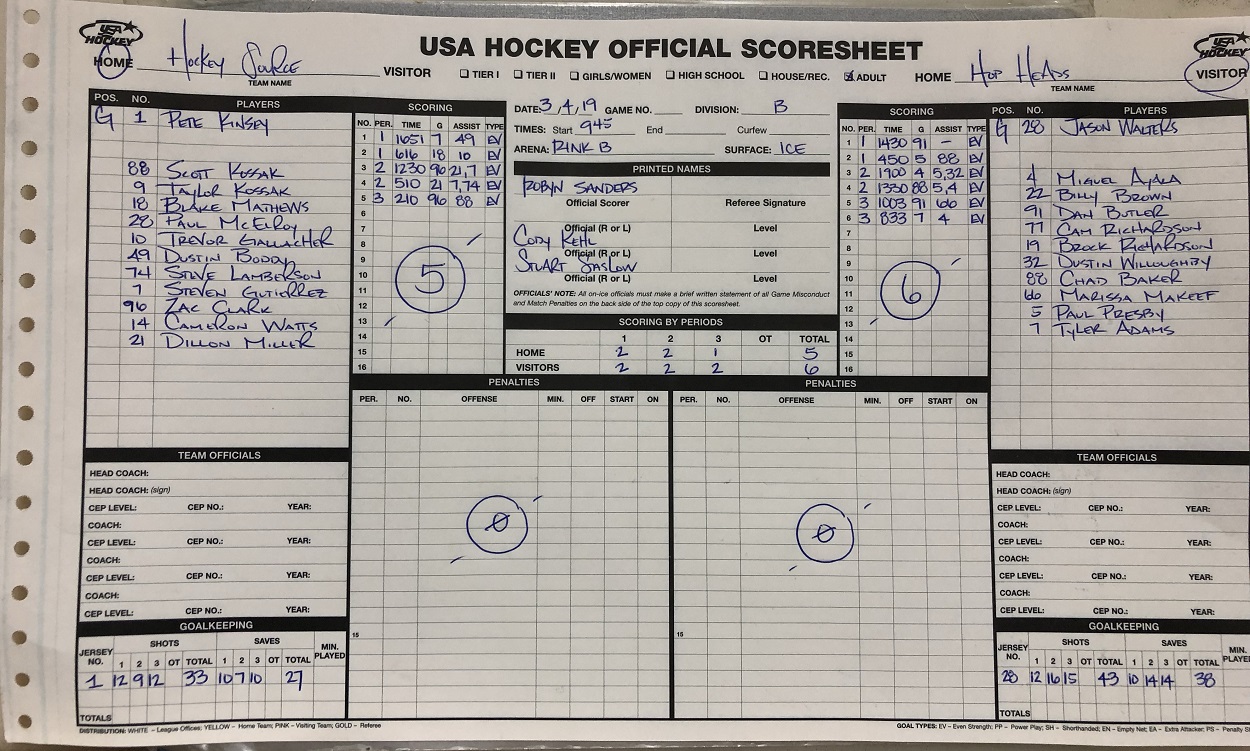 USA HOCKEY
USA HOCKEY OFFICIAL SCORESHEET
USA HOCKEY
HOME Hockey Source VISITOR
TEAM NAME
TIER I TIER II GIRLS/WOMEN HIGH SCHOOL HOUSE/REC. ADULT
HOME Hop Heads VISITOR
TEAM NAME
POS. NO. PLAYERS
G 1 Pete Kinsey
88 Scott Kossak
9 Taylor Kossak
18 Blake Mathews
28 Paul McElroy
10 Trevor Gallacher
49 Dustin Boddy
74 Steve Lamberson
7 Steven Gutierrez
96 Zac Clark
14 Cameron Watts
21 Dillon Miller
SCORING
NO. PER. TIME G ASSIST TYPE
1 1 1651 7 49 EV
2 1 616 18 10 EV
3 2 1230 96 21,7 EV
4 2 510 21 7,74 EV
5 3 210 96 88 EV
6
7
8
9
10
11
12
13
14
15
16
5
DATE: 3,4,19 GAME NO. DIVISION: B
TIMES: Start 945 End Curfew
ARENA: RINK B SURFACE: ICE
PRINTED NAMES
Robyn Sanders
Official Scorer Referee Signature
Official (R or L) Level
Cody Kehl
Official (R or L) Level
Stuart Saslow
Official (R or L) Level
OFFICIALS' NOTE: All on-ice officials must make a brief written statement of all Game Misconduct
and Match Penalties on the back side of the top copy of this scoresheet.
SCORING BY PERIODS
1 2 3 OT TOTAL
HOME 2 2 1 5
VISITORS 2 2 2 6
SCORING
NO. PER. TIME G ASSIST TYPE
1 1 1430 91 - EV
2 1 450 5 88 EV
3 2 1900 4 5,32 EV
4 2 1330 88 5,4 EV
5 3 1003 91 66 EV
6 3 833 7 4 EV
7
8
9
10
11
12
13
14
15
16
6
POS. NO. PLAYERS
G 28 Jason Walters
4 Miguel Ayala
22 Billy Brown
91 Dan Butler
77 Cam Richardson
19 Brock Richardson
32 Dustin Willoughby
88 Chad Baker
66 Marissa Makeef
5 Paul Presby
7 Tyler Adams
PENALTIES
PER. NO. OFFENSE MIN. OFF START ON
0
15
PENALTIES
PER. NO. OFFENSE MIN. OFF START ON
0
15
TEAM OFFICIALS
HEAD COACH:
HEAD COACH: (sign)
CEP LEVEL: CEP NO.: YEAR:
COACH:
CEP LEVEL: CEP NO.: YEAR:
COACH:
CEP LEVEL: CEP NO.: YEAR:
COACH:
CEP LEVEL: CEP NO.: YEAR:
GOALKEEPING
JERSEY NO. SHOTS SAVES MIN. PLAYED
1 2 3 OT TOTAL 1 2 3 OT TOTAL
1 12 9 12 33 10 7 10 27
TOTALS
TEAM OFFICIALS
HEAD COACH:
HEAD COACH: (sign)
CEP LEVEL: CEP NO.: YEAR:
COACH:
CEP LEVEL: CEP NO.: YEAR:
COACH:
CEP LEVEL: CEP NO.: YEAR:
COACH:
CEP LEVEL: CEP NO.: YEAR:
GOALKEEPING
JERSEY NO. SHOTS SAVES MIN. PLAYED
1 2 3 OT TOTAL 1 2 3 OT TOTAL
28 12 16 15 43 10 14 14 38
TOTALS
DISTRIBUTION: WHITE – League Offices; YELLOW – Home Team; PINK – Visiting Team; GOLD – Referee
GOAL TYPES: EV – Even Strength; PP – Power Play; SH – Shorthanded; EN – Empty Net; EA – Extra Attacker; PS – Penalty S